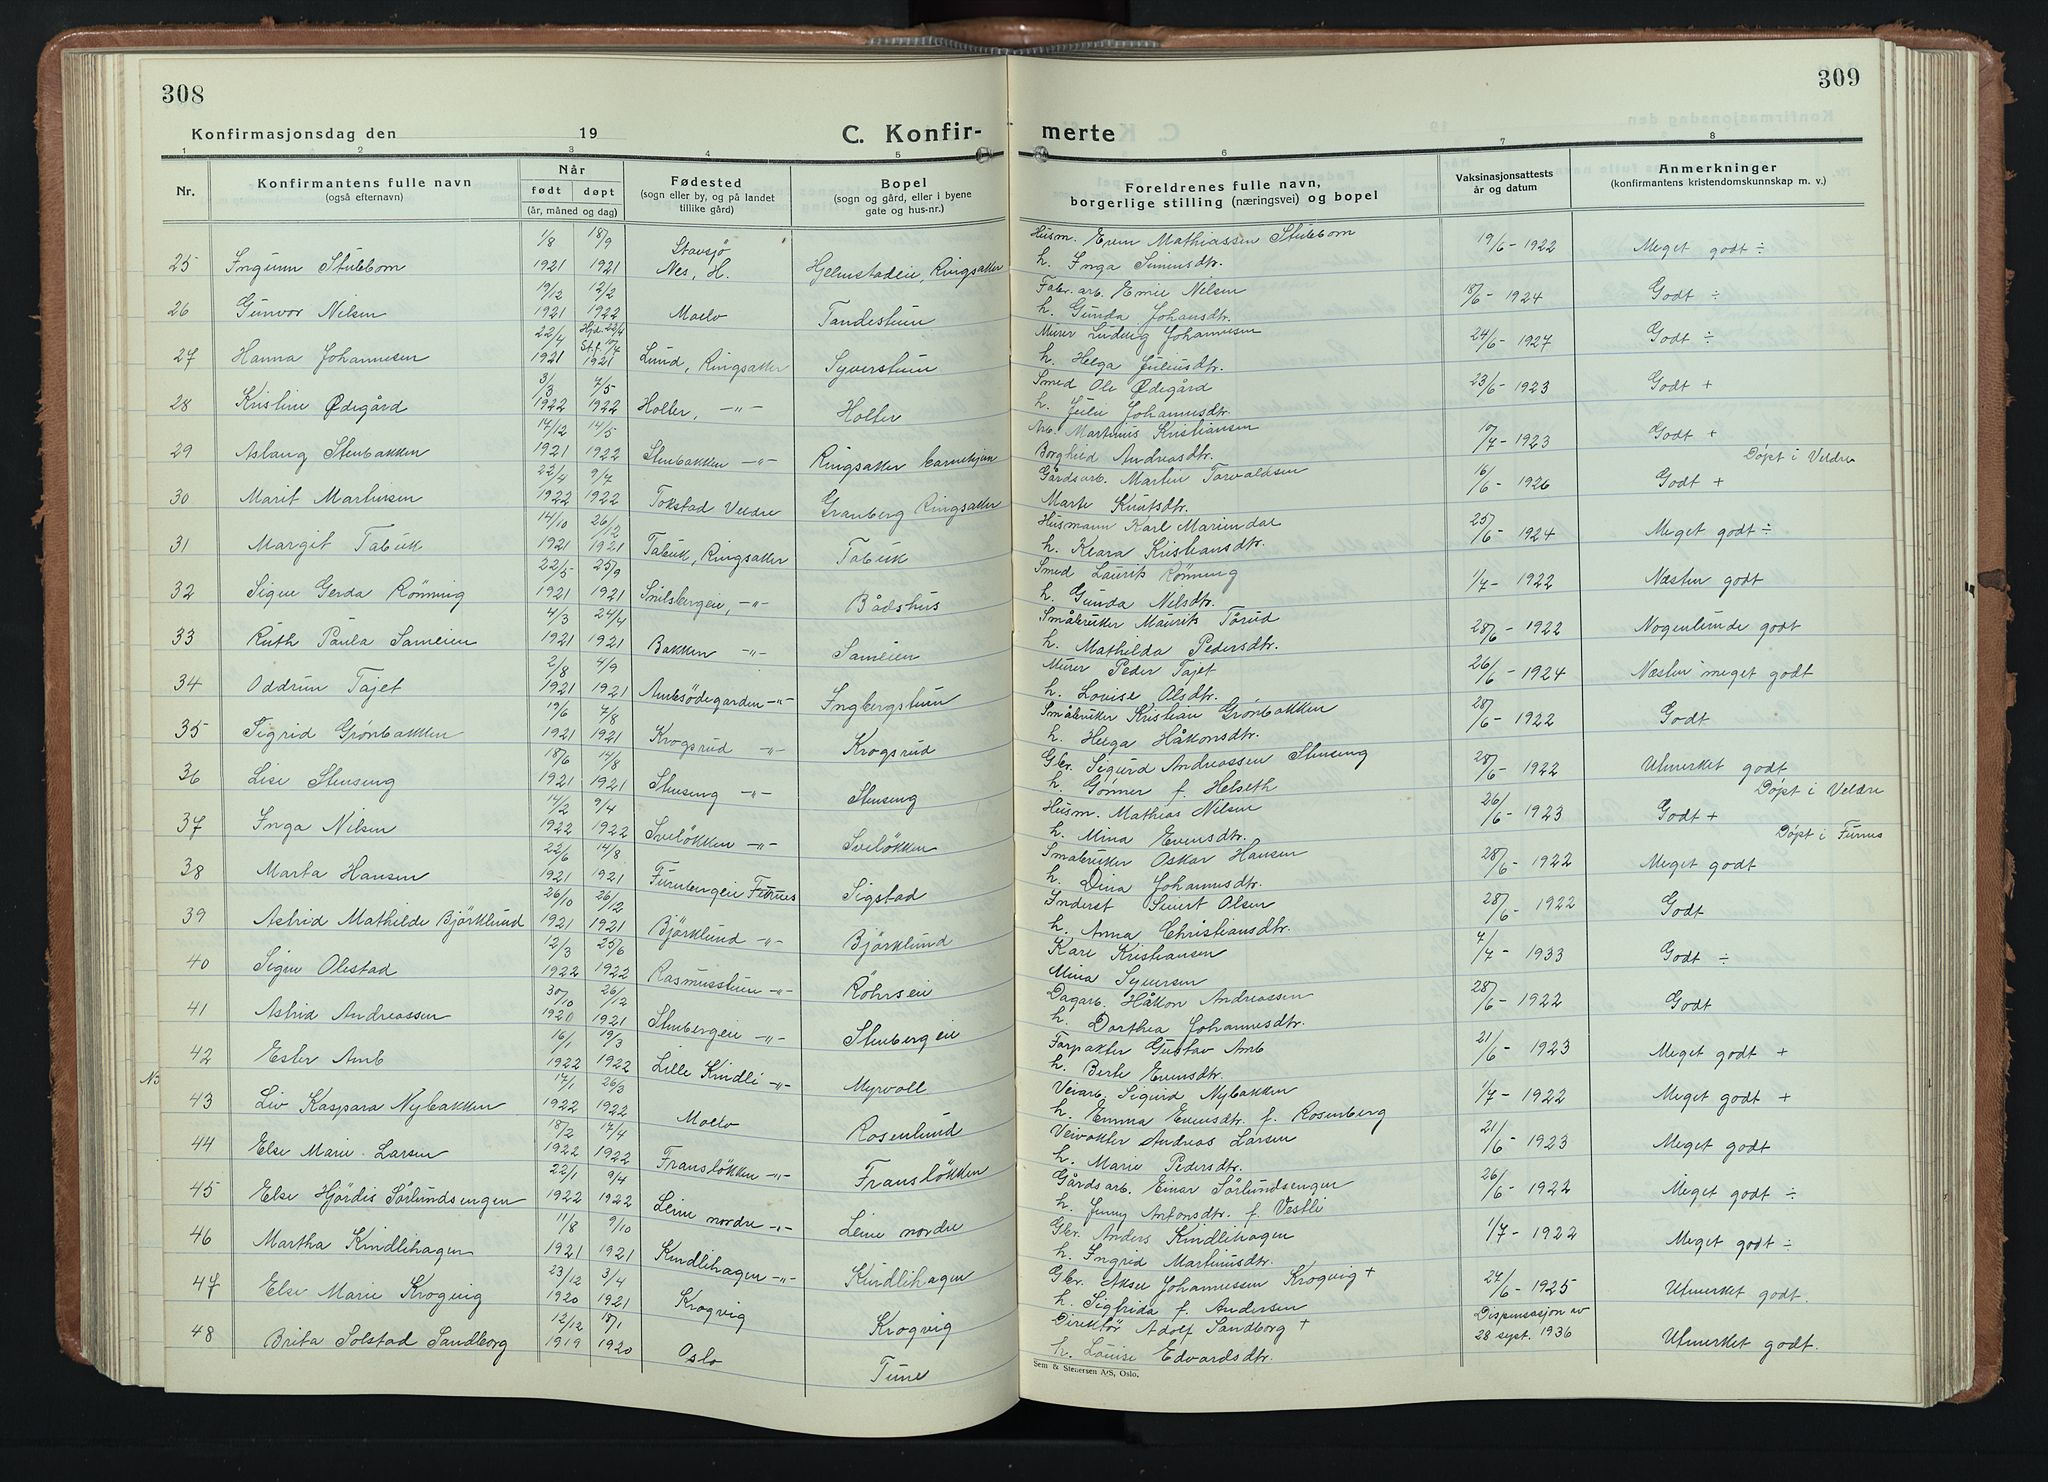 308
309
Konfirmasjonsdag den 19
C. Konfir- merte
1 2 3 4 5 6 7 8
Nr. Konfirmantens fulle navn (også efternavn) Når født døpt (år, måned og dag) Fødested (sogn eller by, og på landet tillike gård) Bopel (sogn og gård, eller i byene gate og hus-nr.) Foreldrenes fulle navn, borgerlige stilling (næringsvei) og bopel Vaksinasjonsattests år og datum Anmerkninger (konfirmantens kristendomskunnskap m. v.)
25 Ingunn Stubbom 1/8 1921 18/9 1921 Stavsjö Nes, H. Hjelmstadeie, Ringsaker Husm. Even Mathiassen Stubbom h. Inga Simensdtr. 19/6 - 1922 Meget godt ÷
26 Gunvor Nilsen 19/12 1921 12/2 1922 Moelv Tandestuen Fabr. arb. Emil Nilsen h. Gunda Johansdtr. 18/6 - 1924 Godt ÷
27 Hanna Johannesen 22/4 1921 Hjd. 22/4 St. f. 10/7 1921 Lund, Ringsaker Syverstuen Murer Ludvig Johannesen h. Helga Juliusdtr. 24/6 - 1927 Godt ÷
28 Kristine Ødegård 3/3 1922 7/5 1922 Holter, -"- Holter Smed Ole Ødegård h. Julie Johannesdtr. 23/6 - 1923 Godt +
29 Aslaug Stenbakken 14/12 1921 14/5 1922 Stenbakken -"- Ringsaker barnehjem Arb. Martinus Kristiansen Borghild Andreasdtr. 10/7 - 1923 Godt +
30 Marit Martinsen 22/4 1922 9/7 1922 Tokstad Veldre Granberg Ringsaker Gårdsarb. Martin Torvaldsen Marte Knutsdtr. 16/6 - 1926 Godt + Døpt i Veldre
31 Margit Tabuk 14/10 1921 26/12 1921 Tabuk, Ringsaker Tabuk Husmann Karl Mariendal h. Klara Kristiansdtr. 25/6 - 1924 Meget godt ÷
32 Signe Gerda Rönning 22/5 1921 25/9 1921 Snilsbergeie, -"- Bådshus Smed Laurits Rönning h. Gunda Nilsdtr. 1/7 - 1922 Næsten godt
33 Ruth Paula Sameien 4/3 1921 24/4 1921 Bakken -"- Sameien Småbruker Maurits Törud h. Mathilda Pedersdtr. 28/6 - 1922 Nogenlunde godt
34 Oddrun Tajet 2/8 1921 4/9 1921 Ambsödegarden -"- Ingbergstuen Murer Peder Tajet h. Lovise Olsdtr. 26/6 - 1924 Næsten meget godt
35 Sigrid Grönbakken 19/6 1921 7/8 1921 Krogsrud -"- Krogsrud Småbruker Kristian Grönbakken h. Helga Håkonsdtr. 28/6 - 1922 Godt
36 Lise Stenseng 18/6 1921 14/8 1921 Stenseng -"- Stenseng Gbr. Sigurd Andreassen Stenseng h. Gönner f. Helseth 28/6 - 1922 Utmerket godt
37 Inga Nilsen 14/2 1922 9/4 1922 Sveløkken -"- Sveløkken Husm. Mathias Nilsen h. Mina Evensdtr. 26/6 - 1923 Godt + Døpt i Veldre
38 Marta Hansen 22/6 1921 14/8 1921 Furubergeie Furnes Sigstad Småbruker Oskar Hansen h. Dina Johannesdtr. 28/6 - 1922 Meget godt Døpt i Furnes
39 Astrid Mathilde Björklund 26/10 1921 26/12 1921 Björklund -"- Björklund Inderst Severt Olsen h. Anna Christiansdtr. 28/6 - 1922 Godt
40 Signe Olestad 12/3 1922 25/6 1922 Rasmusstuen -"- Röhrseie Karl Kristiansen Mina Syversen 7/7 - 1933 Godt ÷
41 Astrid Andreassen 30/10 1920 26/12 1921 Stenbergeie -"- Stenbergeie Dagarb. Håkon Andreassen h. Dorthea Johannesdtr. 28/6 - 1922 Godt
42 Ester Amb 16/1 1922 19/3 1922 Lille Kindli -"- Myrvoll Forpakter Gustav Amb h. Berte Evensdtr. 21/6 - 1923 Meget godt +
43 Liv Kaspara Nybakken 17/1 1922 26/3 1922 Moelv Rosenlund Veiarb. Sigurd Nybakken h. Emma Evensdtr. f. Rosenberg 1/7 - 1922 Meget godt +
44 Else Marie Larsen 18/2 1922 17/4 1922 Fransløkken -"- Fransløkken Veivokter Andreas Larsen h. Marie Pedersdtr. 21/6 - 1923 Meget godt
45 Else Hjördis Sörlundsengen 22/1 1922 9/4 1922 Leine nordre -"- Leine nordre Gårdsarb. Einar Sörlundsengen h. Jenny Antonsdtr. f. Vestli 26/6 - 1922 Meget godt ÷
46 Martha Kindlihagen 11/8 1921 9/10 1921 Kindlihagen -"- Kindlihagen Gbr. Anders Kindlihagen h. Ingrid Martinusdtr. 1/7 - 1922 Meget godt ÷
47 Else Marie Krogvig 23/12 1920 3/4 1921 Krogvig Krogvig Gbr. Aksel Johannessen Krogvig + h. Sigfrida f. Andersen 27/6 - 1925 Utmerket godt
48 Brita Solstad Sandborg 12/12 1919 18/1 1920 Oslo Tune Direktör Adolf Sandborg + h. Louise Edvardsdtr. Dispensasjon av 28 sept. 1936 Utmerket godt.
Sem & Stenersen A/S, Oslo.